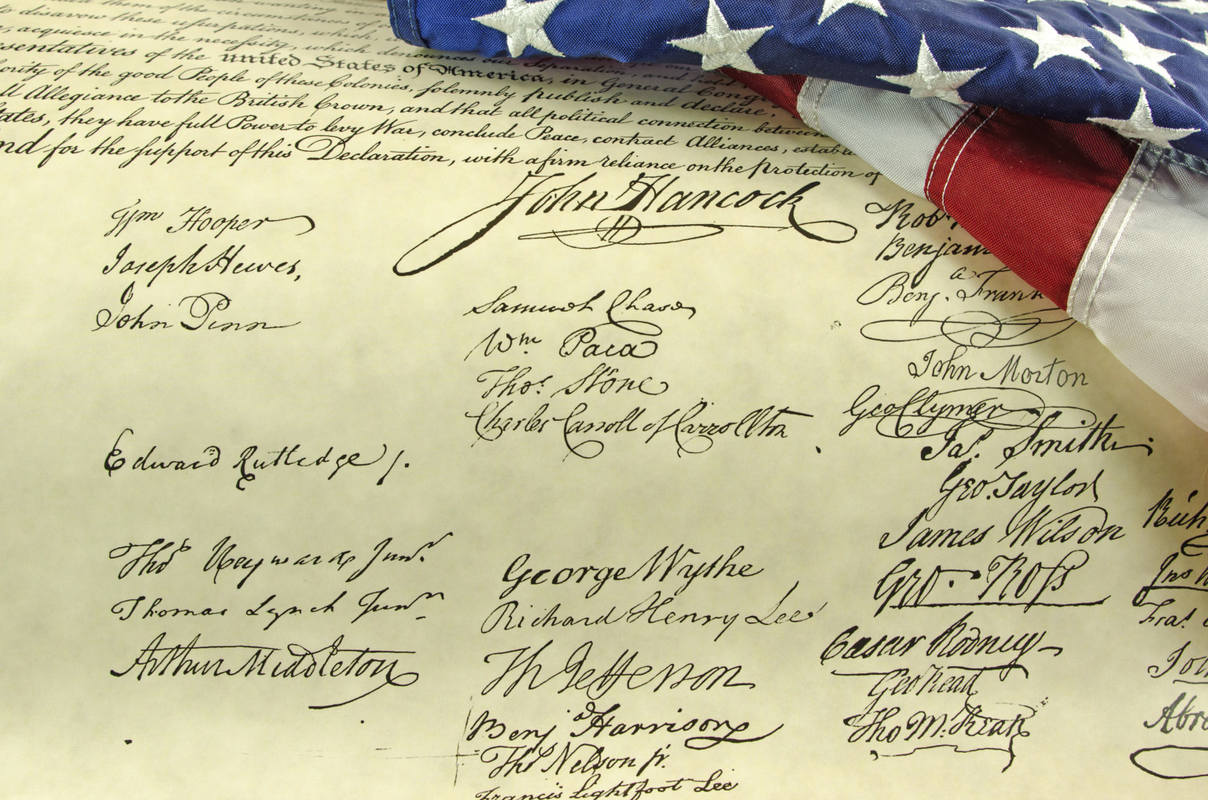 disavow these usurpations, which,
acquiesce in the necessity, which denounces our Separation, and
esentatives of the united States of America, in General Cong
ority of the good People of these Colonies, solemnly publish and declare,
ll Allegiance to the British Crown, and that all political connection between
tates, they have full Power to levy War, conclude Peace, contract Alliances, establ
nd for the support of this Declaration, with a firm reliance on the Protection of
John Hancock
Wm Hooper
Joseph Hewes,
John Penn
Edward Rutledge /.
Thos Heyward Junr.
Thomas Lynch Junr.
Arthur Middleton
Samuel Chase
Wm. Paca
Thos. Stone
Charles Carroll of Carrollton
George Wythe
Richard Henry Lee
Th Jefferson
Benj Harrison
Thos Nelson jr.
Francis Lightfoot Lee
Rob
Benjam
Benj. Frank
John Morton
Geo Clymer
Jas. Smith
Geo. Taylor
James Wilson
Geo. Ross
Caesar Rodney
Geo Read
Tho M:Kean
Rich
Jno
Fras.
Joh
Abra